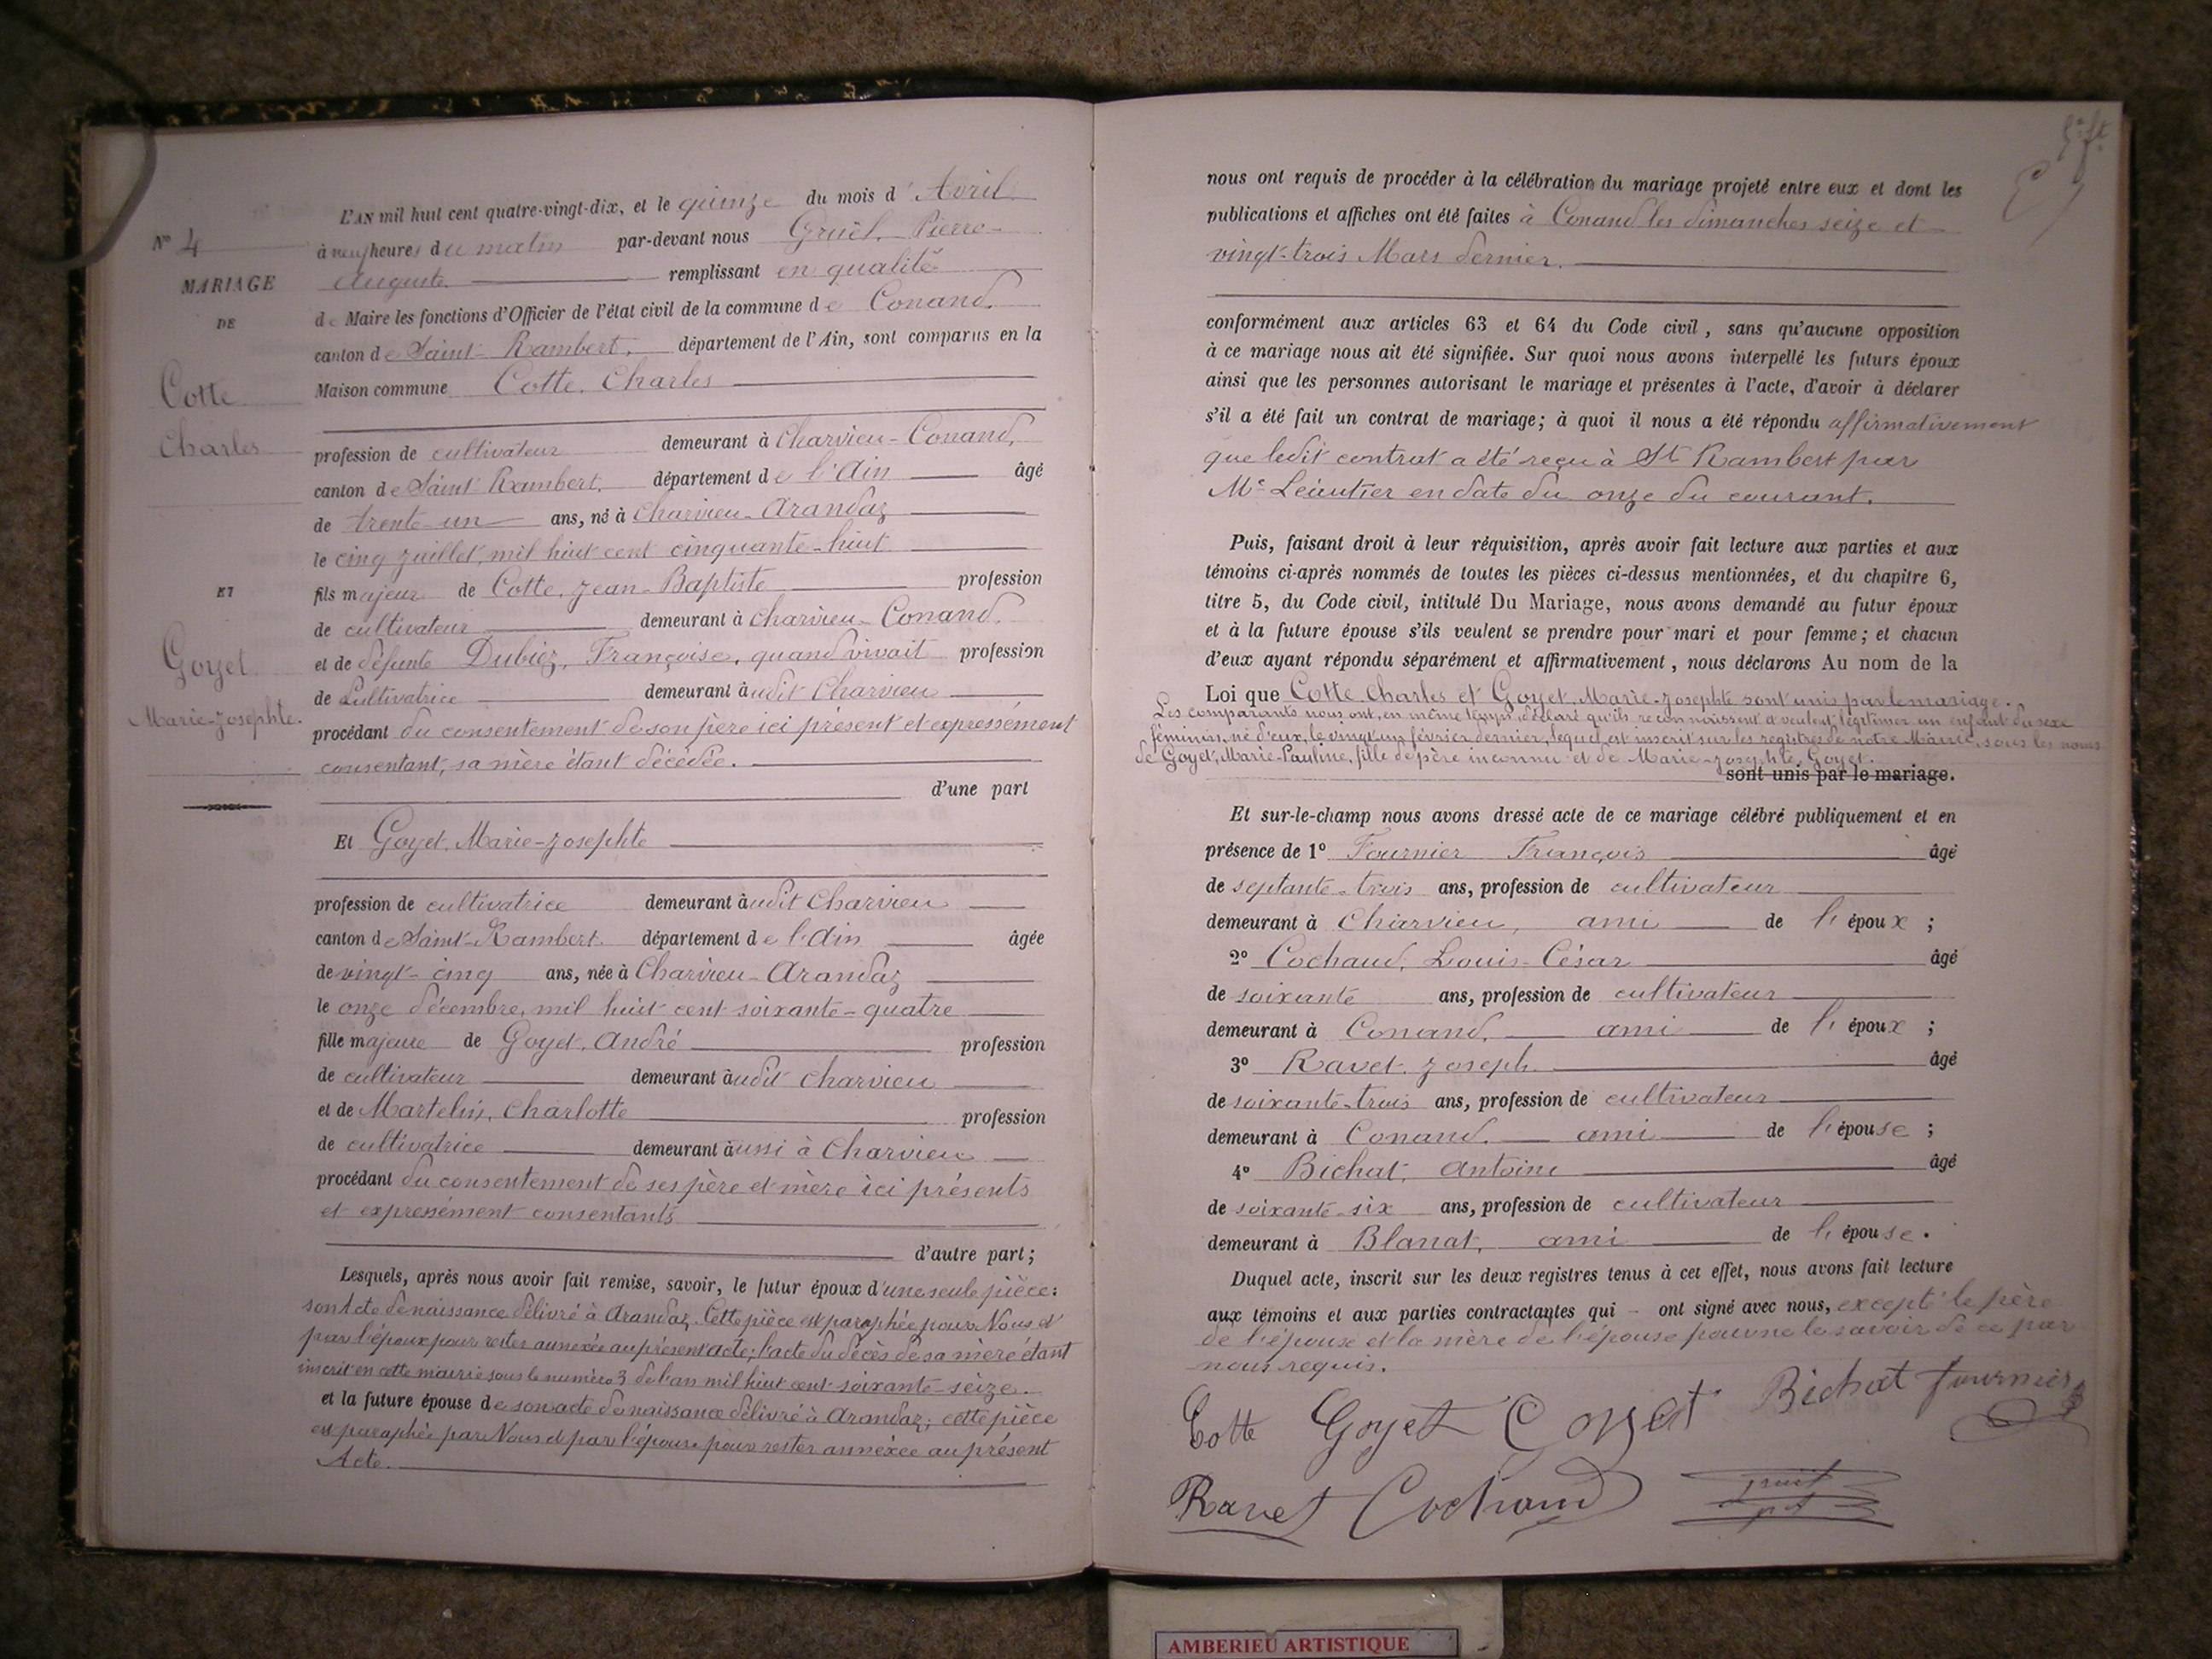 L'AN mil huit cent quatre-vingt-dix, et le quinze du mois d'Avril
à neuf heures du matin par-devant nous Gruel, Pierre-
Auguste remplissant en qualité
de Maire les fonctions d'Officier de l'état civil de la commune de Conand,
canton de Saint-Rambert, département de l'Ain, sont comparus en la
Maison commune Cotte, Charles
profession de cultivateur demeurant à Charvieu-Conand,
canton de Saint Rambert, département de l'Ain âgé
de trente-un ans, né à Charvieu-Arandaz
le cinq juillet, mil huit cent cinquante-huit
fils majeur de Cotte, Jean-Baptiste profession
de cultivateur demeurant à Charvieu-Conand,
et de défunte Dubiez, Françoise, quand vivait profession
de Cultivatrice demeurant audit Charvieu
procédant du consentement de son père ici présent et expressément
consentant, sa mère étant décédée.
d'une part
Et Goyet, Marie-Josephte
profession de cultivatrice demeurant audit Charvieu
canton de Saint-Rambert département de l'Ain âgée
de vingt-cinq ans, née à Charvieu-Arandaz
le onze décembre, mil huit cent soixante-quatre
fille majeure de Goyet, André profession
de cultivateur demeurant audit Charvieu
et de Martelin, Charlotte profession
de cultivatrice demeurant aussi à Charvieu
procédant du consentement de ses père et mère ici présents
et expressément consentants
d'autre part;
Lesquels, après nous avoir fait remise, savoir, le futur époux d'une seule pièce:
son Acte de naissance délivré à Arandaz. Cette pièce est paraphée pour Nous et
par l'époux pour rester annexée au présent acte; l'acte du décès de sa mère étant
inscrit en cette mairie sous le numéro 3 de l'an mil huit cent soixante-seize.
et la future épouse de son acte de naissance délivré à Arandaz; cette pièce
est paraphée par Nous et par l'épouse pour rester annexée au présent
Acte.
N° 4
MARIAGE
DE
Cotte
Charles
ET
Goyet
Marie-Josephte.
nous ont requis de procéder à la célébration du mariage projeté entre eux et dont les
publications et affiches ont été faites à Conand les dimanches seize et
vingt-trois Mars dernier.
conformément aux articles 63 et 64 du Code civil, sans qu'aucune opposition
à ce mariage nous ait été signifiée. Sur quoi nous avons interpellé les futurs époux
ainsi que les personnes autorisant le mariage et présentes à l'acte, d'avoir à déclarer
s'il a été fait un contrat de mariage; à quoi il nous a été répondu affirmativement
que ledit contrat a été reçu à St Rambert par
Me Léautier en date du onze du courant.
Puis, faisant droit à leur réquisition, après avoir fait lecture aux parties et aux
témoins ci-après nommés de toutes les pièces ci-dessus mentionnées, et du chapitre 6,
titre 5, du Code civil, intitulé Du Mariage, nous avons demandé au futur époux
et à la future épouse s'ils veulent se prendre pour mari et pour femme; et chacun
d'eux ayant répondu séparément et affirmativement, nous déclarons Au nom de la
Loi que Cotte Charles et Goyet, Marie-Josephte sont unis par le mariage.
Les comparants nous ont, en même temps, déclaré qu'ils reconnaissent et veulent légitimer un enfant du sexe
féminin, né d'eux, le vingt-un février dernier, lequel est inscrit sur les registres de notre Mairie, sous les noms
de Goyet, Marie-Pauline, fille de père inconnu et de Marie-Josephte Goyet.
sont unis par le mariage.
Et sur-le-champ nous avons dressé acte de ce mariage célébré publiquement et en
présence de 1° Fournier François âgé
de septante-trois ans, profession de cultivateur
demeurant à Charvieu, ami de l'époux;
2° Cochaud, Louis-César âgé
de soixante ans, profession de cultivateur
demeurant à Conand, ami de l'époux;
3° Ravet, Joseph âgé
de soixante-trois ans, profession de cultivateur
demeurant à Conand, ami de l'épouse;
4° Bichat, Antoine âgé
de soixante-six ans, profession de cultivateur
demeurant à Blanat, ami de l'épouse.
Duquel acte, inscrit sur les deux registres tenus à cet effet, nous avons fait lecture
aux témoins et aux parties contractantes qui - ont signé avec nous, excepté le père
de l'épouse et la mère de l'épouse pour ne le savoir de ce par
nous requis.
Cotte Goyet Goyet Bichat fournier
Ravet Cochaud
AMBERIEU ARTISTIQUE